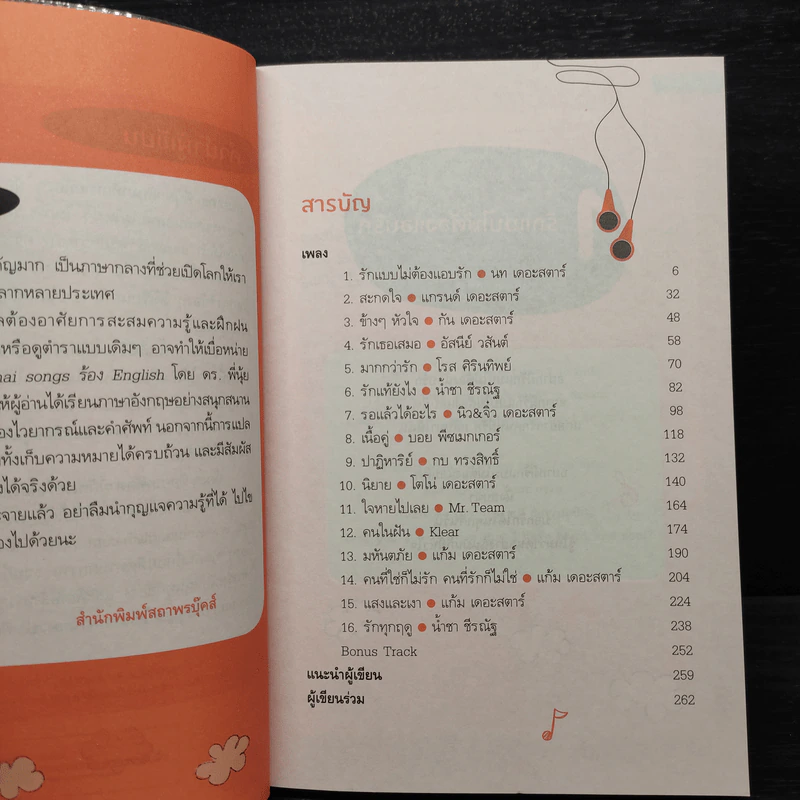 ัญมาก เป็นภาษากลางที่ช่วยเปิดโลกให้เรา
ลากหลายประเทศ
ต้องอาศัยการสะสมความรู้และฝึกฝน
หรือดูตำราแบบเดิมๆ อาจทำให้เบื่อหน่าย
songs ร้อง English โดย ดร. พี่นุ้ย
ห้ผู้อ่านได้เรียนภาษาอังกฤษอย่างสนุกสนาน
องไวยากรณ์และคำศัพท์ นอกจากนี้การแปล
ทั้งเก็บความหมายได้ครบถ้วน และมีสัมผัส
งได้จริงด้วย
ะจายแล้ว อย่าลืมนำกุญแจความรู้ที่ได้ ไปไข
องไปด้วยนะ
สำนักพิมพ์สถาพรบุ๊คส์
สารบัญ
เพลง
1. รักแบบไม่ต้องแอบรัก ● นท เดอะสตาร์ 6
2. สะกดใจ ● แกรนด์ เดอะสตาร์ 32
3. ข้างๆ หัวใจ ● กัน เดอะสตาร์ 48
4. รักเธอเสมอ ● อัสนีย์ วสันต์ 58
5. มากกว่ารัก ● โรส ศิรินทิพย์ 70
6. รักแท้ยังไง ● น้ำชา ชีรณัฐ 82
7. รอแล้วได้อะไร ● นิว&จิ๋ว เดอะสตาร์ 98
8. เนื้อคู่ ● บอย พีซเมกเกอร์ 118
9. ปาฏิหาริย์ ● กบ ทรงสิทธิ์ 132
10. นิยาย ● โตโน่ เดอะสตาร์ 140
11. ใจหายไปเลย ● Mr. Team 164
12. คนในฝัน ● Klear 174
13. มหันตภัย ● แก้ม เดอะสตาร์ 190
14. คนที่ใช่ก็ไม่รัก คนที่รักก็ไม่ใช่ ● แก้ม เดอะสตาร์ 204
15. แสงและเงา ● แก้ม เดอะสตาร์ 224
16. รักทุกฤดู ● น้ำชา ชีรณัฐ 238
Bonus Track 252
แนะนำผู้เขียน 259
ผู้เขียนร่วม 262